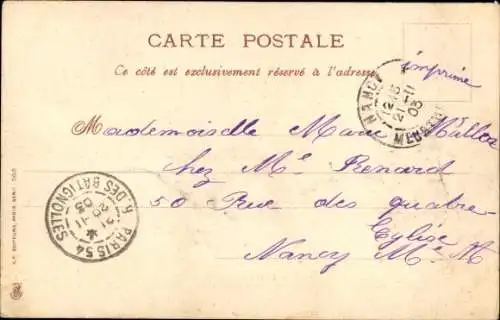 CARTE POSTALE
Ce côté est exclusivement réservé à l'adresse
imprimé
NANCY
12-15
21-11
03
Mademoiselle Marie
chez Mr Renard
50 Rue des quatre
Eglise
Nancy M. M
PARIS 54
R. DES BATIGNOLLES
21-11
03